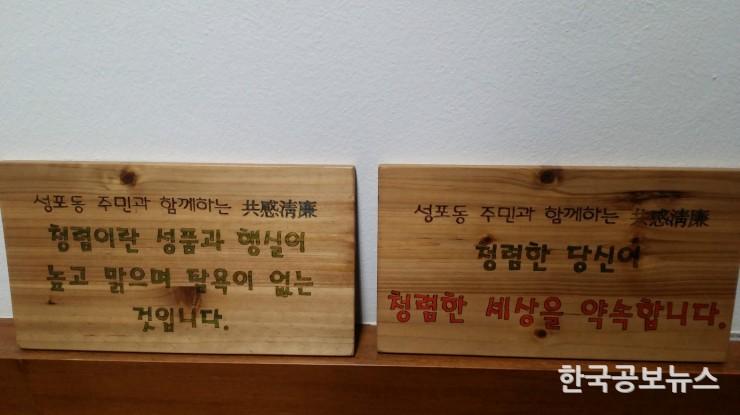 성포동 주민과 함께하는 共感淸廉
청렴이란 성품과 행실이
높고 맑으며 탐욕이 없는
것입니다.
성포동 주민과 함께하는 共感淸廉
청렴한 당신이
청렴한 세상을 약속합니다.
한국공보뉴스